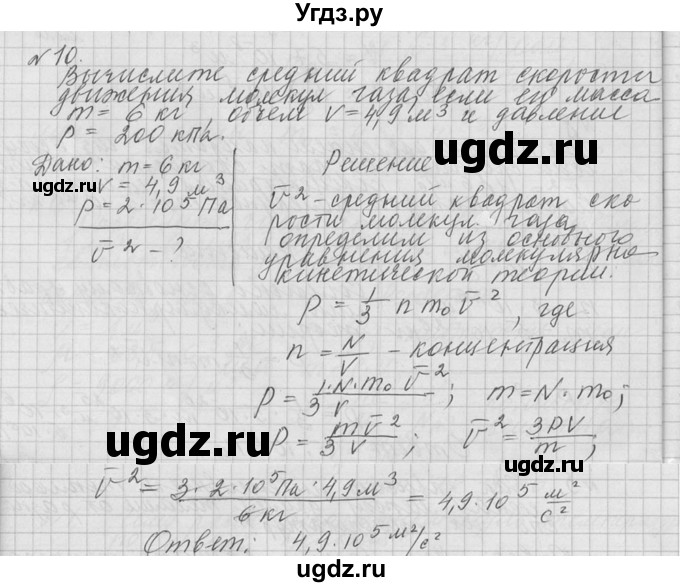 Угдз.ру
№10.
Вычислите средний квадрат скорости
движения молекул газа, если его масса
m = 6 кг, объем V = 4,9 м³ и давление
p = 200 кПа.
Дано:
m = 6 кг
V = 4,9 м³
p = 2 · 10⁵ Па
v̄² - ?
Решение
v̄² - средний квадрат ско
рости молекул газа
определим из основного
уравнения молекулярно
кинетической теории.
p = 1/3 n m₀ v̄², где
n = N/V - концентрация
p = 1·N·m₀ v̄² / 3 V ; m = N · m₀;
p = m v̄² / 3 V ; v̄² = 3PV / m ;
v̄² = 3 · 2 · 10⁵ Па · 4,9 м³ / 6 кг = 4,9 · 10⁵ м²/с²
Ответ: 4,9 · 10⁵ м²/с²
ugdz.ru
ugdz.ru
ugdz.ru
ugdz.ru
ugdz.ru
ugdz.ru
ugdz.ru